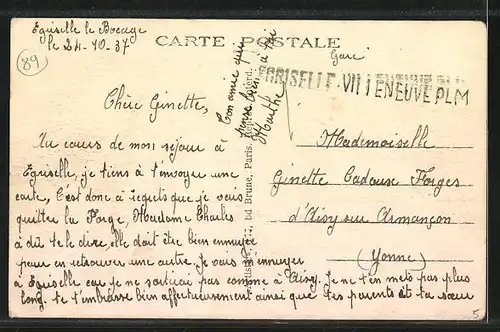 Egriselle le Bocage
le 24-10-37
89
CARTE POSTALE
Gare
EGRISELLE-VILLENEUVE PLM
Ton amie qui
pense bien à toi
Marthe
Chère Ginette,
Au cours de mon séjour à
Egriselle, je tiens à t'envoyer une
carte, C'est donc à regrets que je vais
quitter la Forge, Madame Charles
a dû te le dire, elle doit être bien ennuyée
pour en retrouver une autre. Je vais m'ennuyer
à Egriselle car je ne sortirai pas comme à Aisy. Je ne t'en mets pas plus
long. Je t'embrasse bien affectueusement ainsi que tes parents et ta sœur
Ed Brune, Paris.
Mademoiselle
Ginette Cadoux Forges
d'Aisy sur Armançon
(Yonne)
5